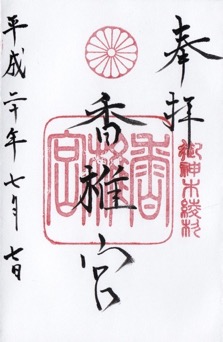 奉拝
御神木綾杉
香椎宮
香椎宮
平成二十年七月七日